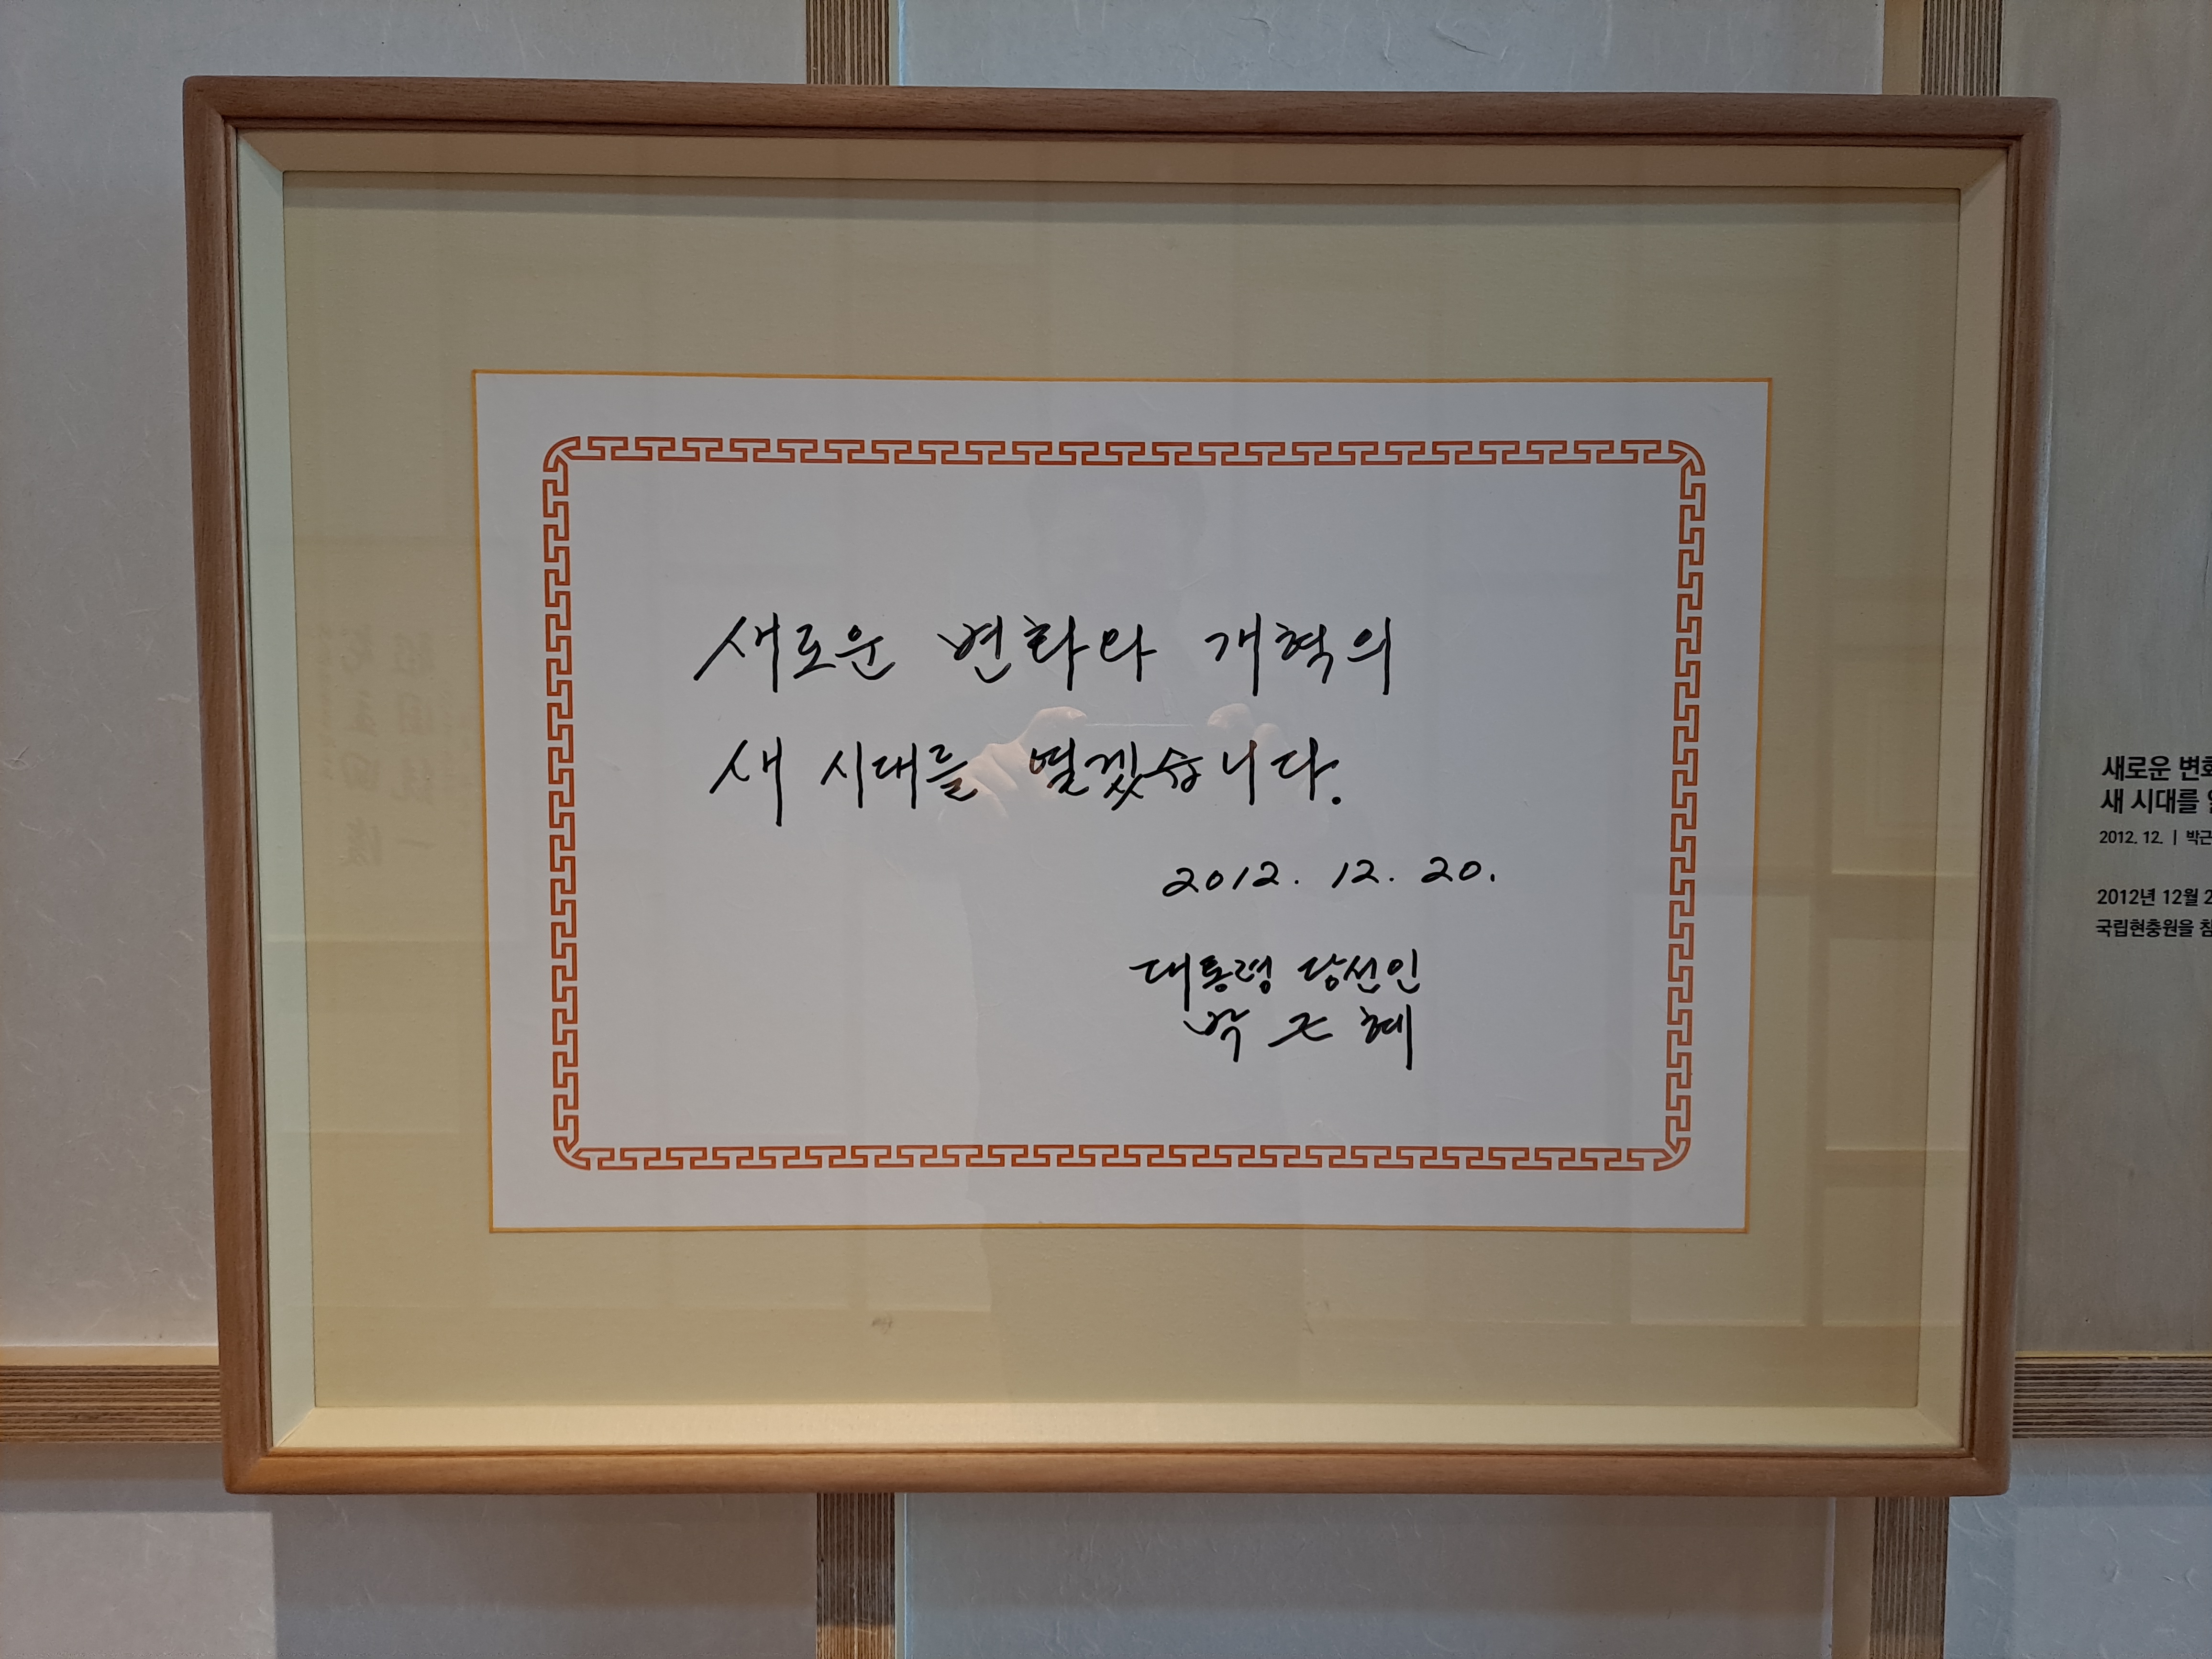 새로운 변화와 개혁의
새 시대를 열겠습니다.
2012. 12. 20.
대통령 당선인
박 근 혜
새로운 변화
새 시대를
2012. 12. | 박근
2012년 12월 2
국립현충원을 참